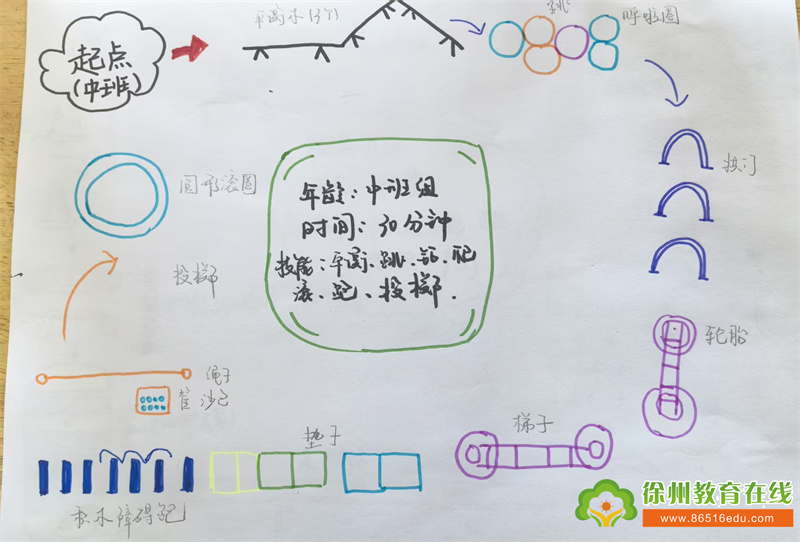 起点
(中班)
平衡木(3个)
跳
呼啦圈
拱门
圆形滚圈
投掷
年龄:中班组
时间:30分钟
技能:平衡、跳、钻、爬
滚、跑、投掷.
轮胎
绳子
筐 沙包
垫子
梯子
积木障碍跑
徐州教育在线
www.86516edu.com